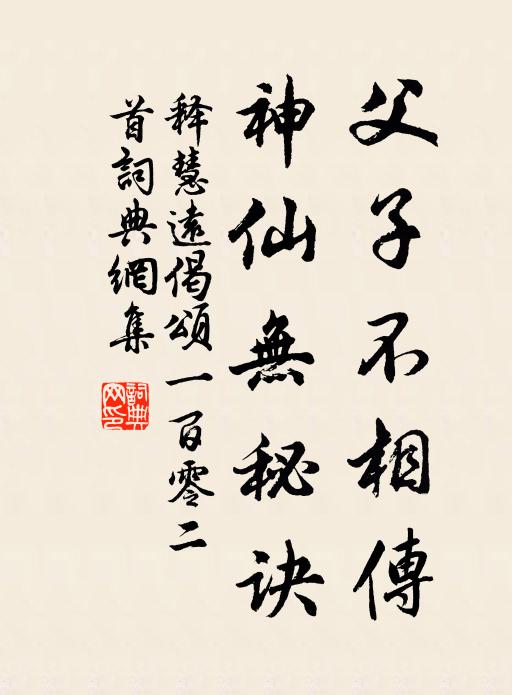 父子不相傳
神仙無秘诀
释慧遠偈頌一百零二
首詞典網集
詞典网印